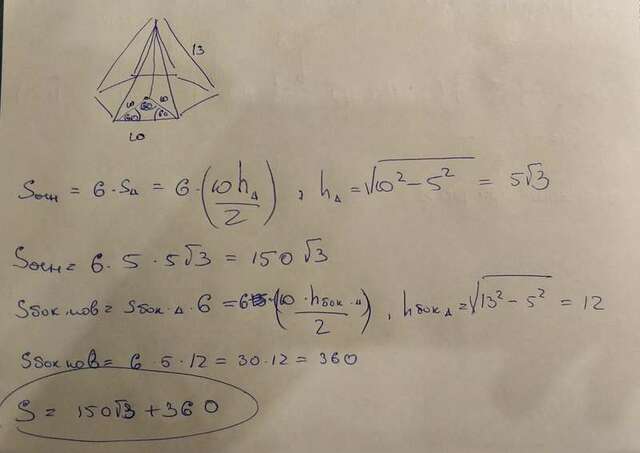 13
10 10
60
60 60
10
Sосн = 6 · S△ = 6 · (10 h△ / 2) , h△ = √10² − 5² = 5√3
Sосн = 6 · 5 · 5√3 = 150√3
Sбок.пов = Sбок.△ · 6 = 6 · (10 · hбок.△ / 2) , hбок△ = √13² − 5² = 12
Sбок пов = 6 · 5 · 12 = 30 · 12 = 360
S = 150√3 + 360